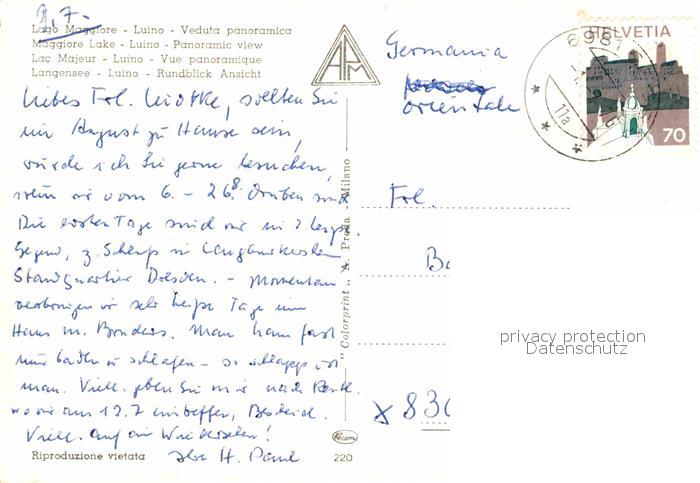 9.7.
Lago Maggiore - Luino - Veduta panoramica
Maggiore Lake - Luino - Panoramic view
Lac Majeur - Luino - Vue panoramique
Langensee - Luino - Rundblick Ansicht
Liebes Frl. sollten Sie
im August zu Hause sein,
würde ich Sie gerne besuchen,
wenn wir vom 6. - 26.8. drüben sind
Die ersten Tage sind wir in
Gegend, z. in
Standquartier Dresden. - Momentan
verbringen wir sehr heiße Tage im
Haus m. Bruders. Man kann fast
nur baden u schlafen - so schlapp ist
man. Viell. geben Sie mir nach
wo wir am 12.7 eintreffen, Bescheid.
Viell. auf ein Wiedersehen!
Ihre H.
Riproduzione vietata
220
APM
"Colorprint" A. Preda - Milano
Germania
orientale
HELVETIA
70
6981
11a
Frl.
Ba
X 830
privacy protection
Datenschutz